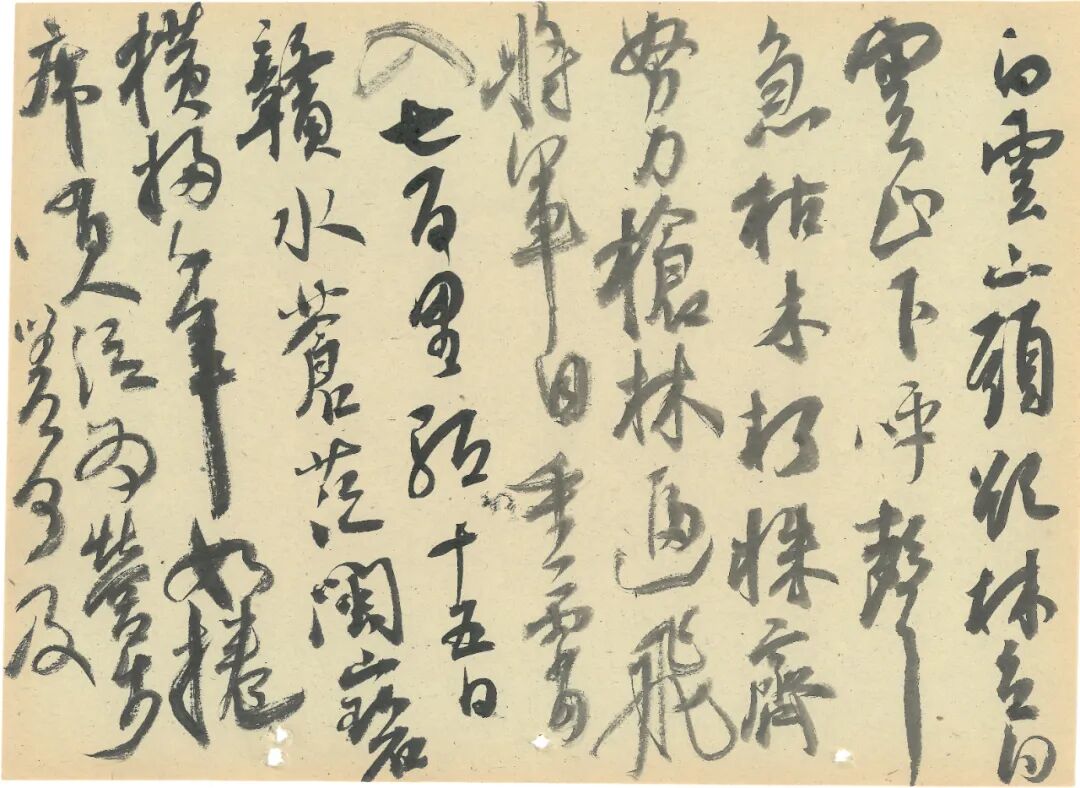 白雲山頭欲林立白
雲山下呼聲
急枯木朽株齊
努力槍林逼飛
將軍自重霄
入七百里驅十五日
贛水蒼茫閩山碧
橫掃千軍如捲
席有人泣為營步
、嗟何及